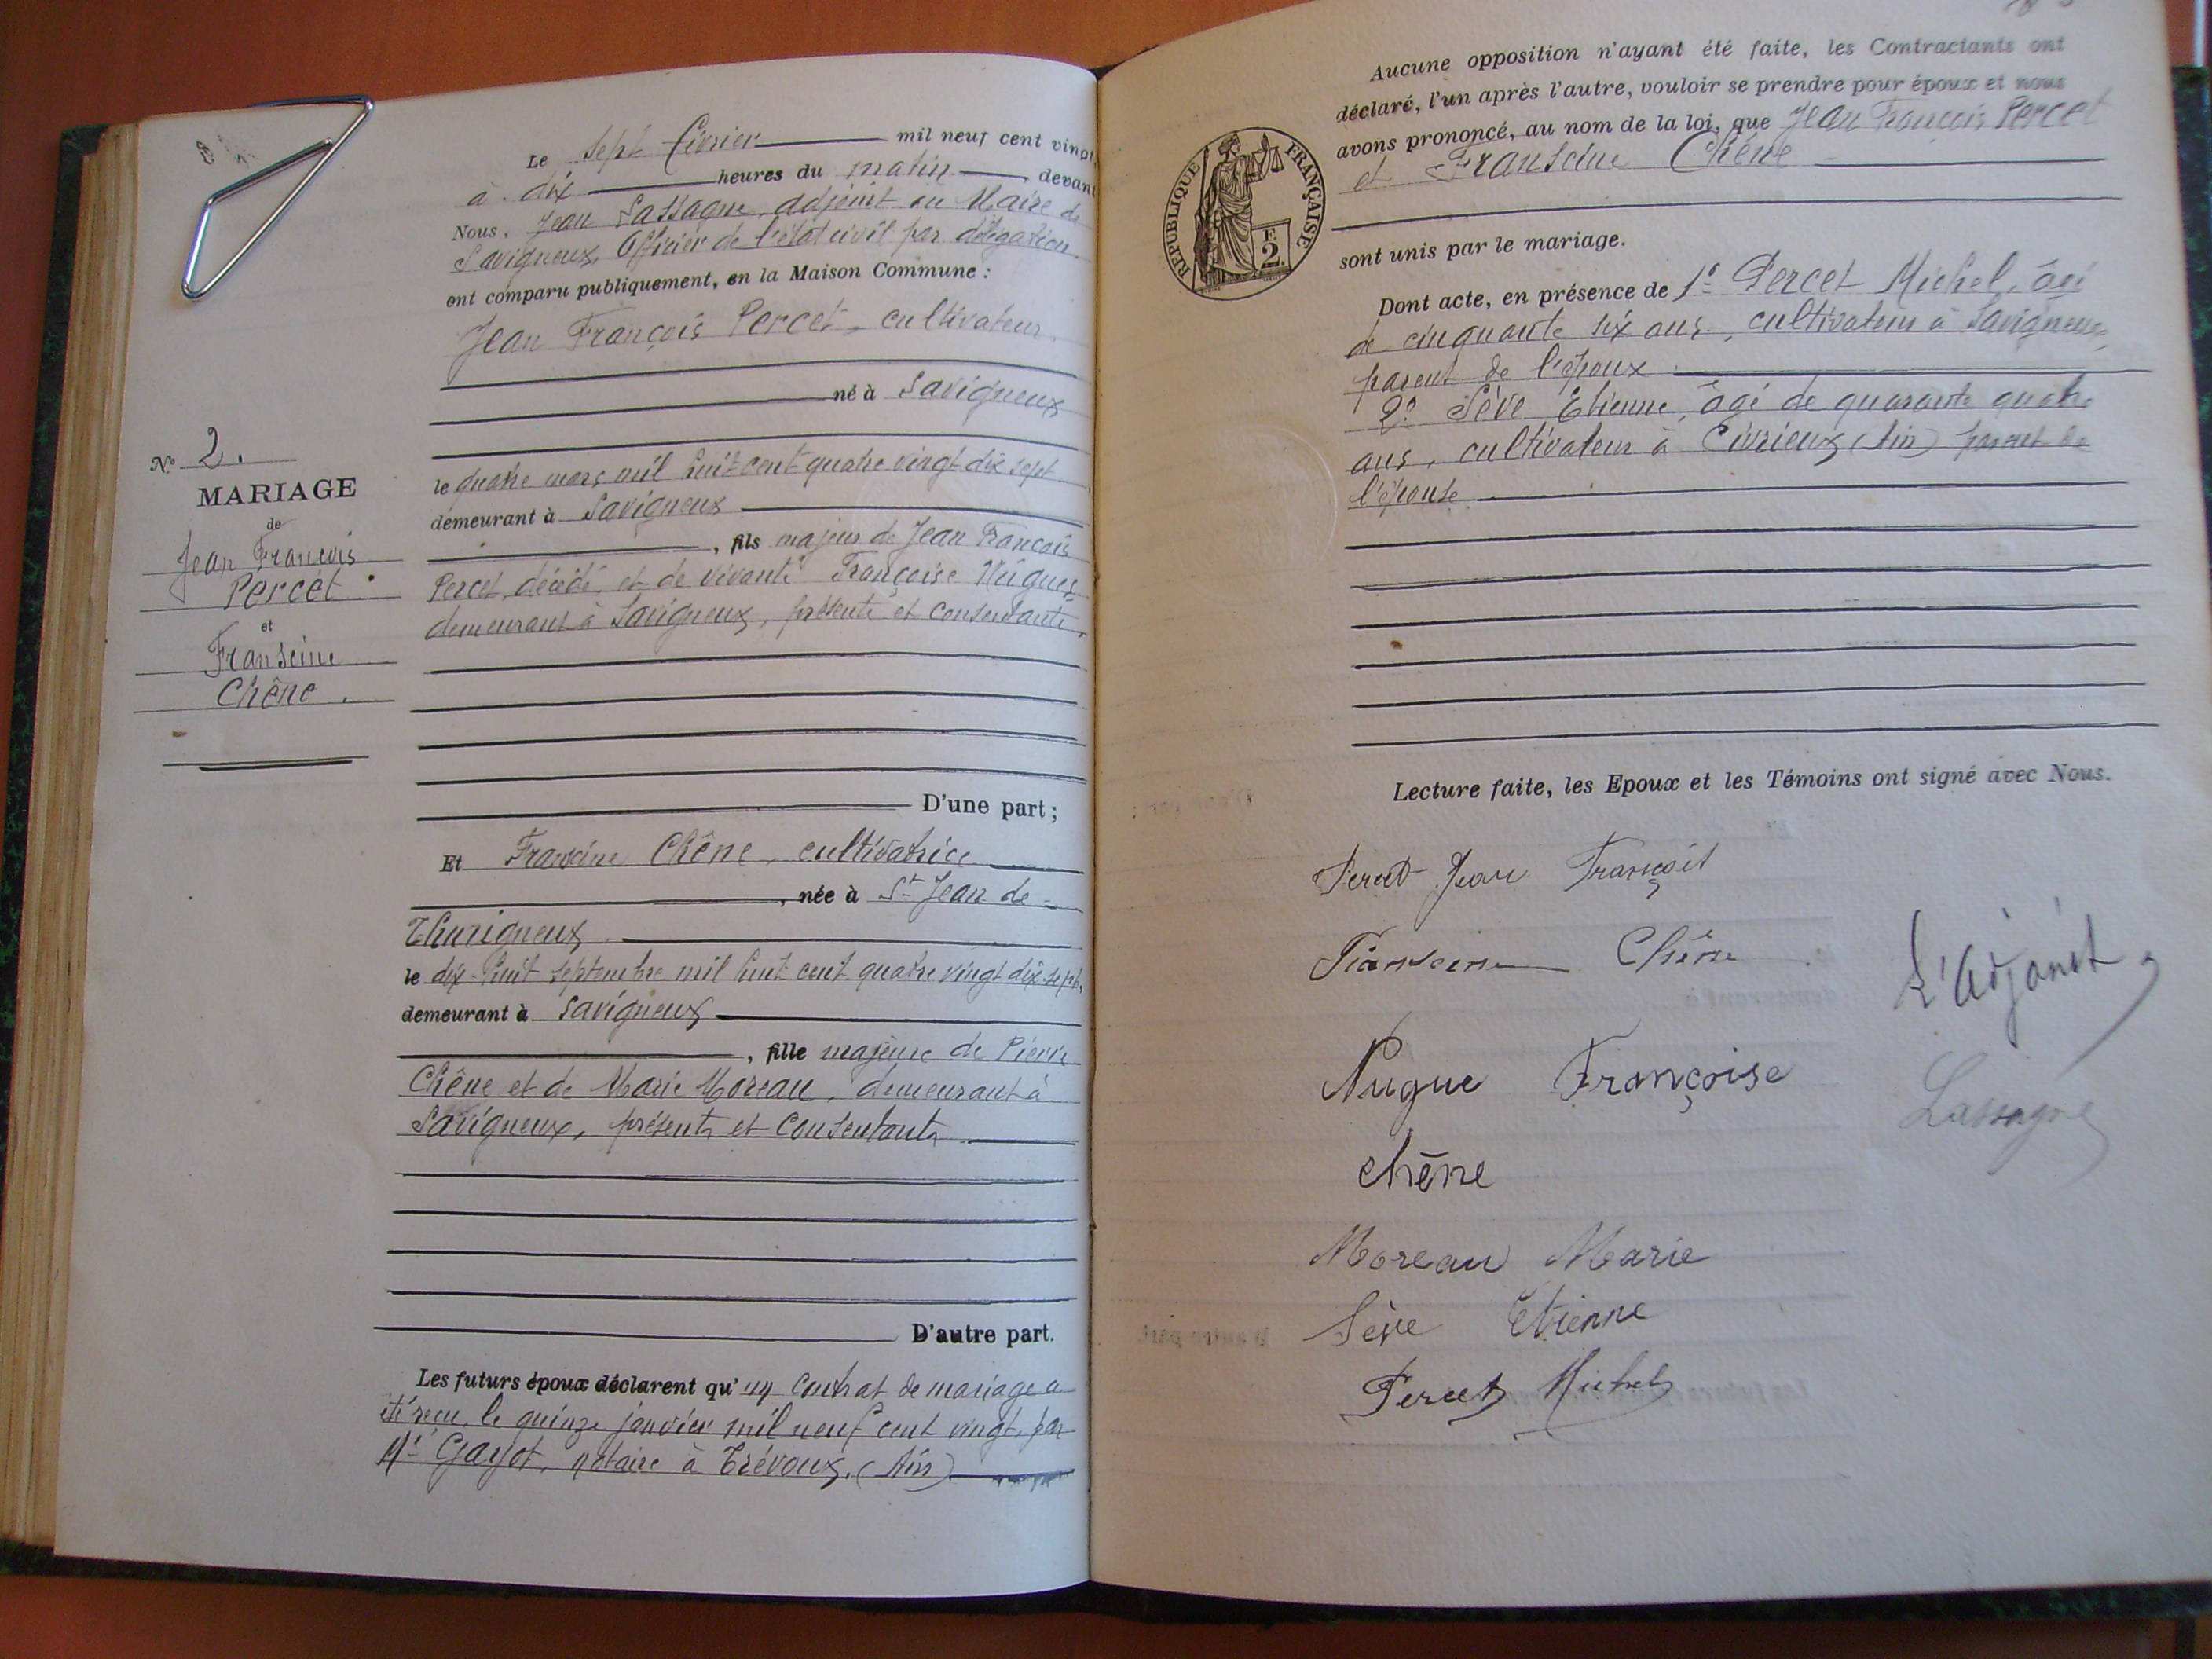 Le sept février mil neuf cent vingt
à dix heures du matin, devant
Nous, Jean Lassagne, adjoint au Maire de
Savigneux, Officier de l'état civil par délégation
ont comparu publiquement, en la Maison Commune :
Jean François Percet, cultivateur
né à Savigneux
le quatre mars mil huit cent quatre vingt dix sept
demeurant à Savigneux
, fils majeur de Jean François
Percet, décédé, et de vivante Françoise Nugues,
demeurant à Savigneux, présente et consentante,
N° 2.
MARIAGE
de
Jean François
Percet
et
Franseine
Chêne.
D'une part ;
Et Franseine Chêne, cultivatrice
, née à St Jean de
Thurigneux
le dix-huit septembre mil huit cent quatre vingt dix-sept,
demeurant à Savigneux
, fille majeure de Pierre
Chêne et de Marie Moreau, demeurant à
Savigneux, présents et consentants
D'autre part.
Les futurs époux déclarent qu'un contrat de mariage a
été reçu, le quinze janvier mil neuf cent vingt, par
Me Gayot, notaire à Trévoux, (Ain)
Aucune opposition n'ayant été faite, les Contractants ont
déclaré, l'un après l'autre, vouloir se prendre pour époux et nous
avons prononcé, au nom de la loi, que Jean François Percet
et Franseine Chêne
RÉPUBLIQUE FRANÇAISE
E
2.
sont unis par le mariage.
Dont acte, en présence de 1° Percet Michel, âgé
de cinquante six ans, cultivateur à Savigneux,
parent de l'époux
2° Sève Etienne, âgé de quarante quatre
ans, cultivateur à Civrieux (Ain) parent de
l'épouse
Lecture faite, les Epoux et les Témoins ont signé avec Nous.
Percet Jean François
Franseine Chêne
L'Adjoint,
Nugue Françoise
Lassagne
Chêne
Moreau Marie
Sève Etienne
Percet Michel